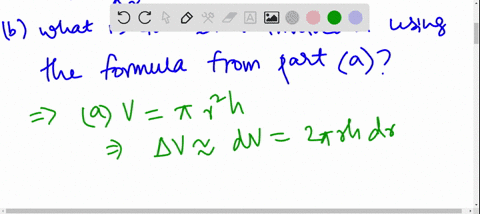 (b) what using
the formula from part (a)?
⇒ (a) V = π r²h
⇒ ΔV ≈ dV = 2πrh dr